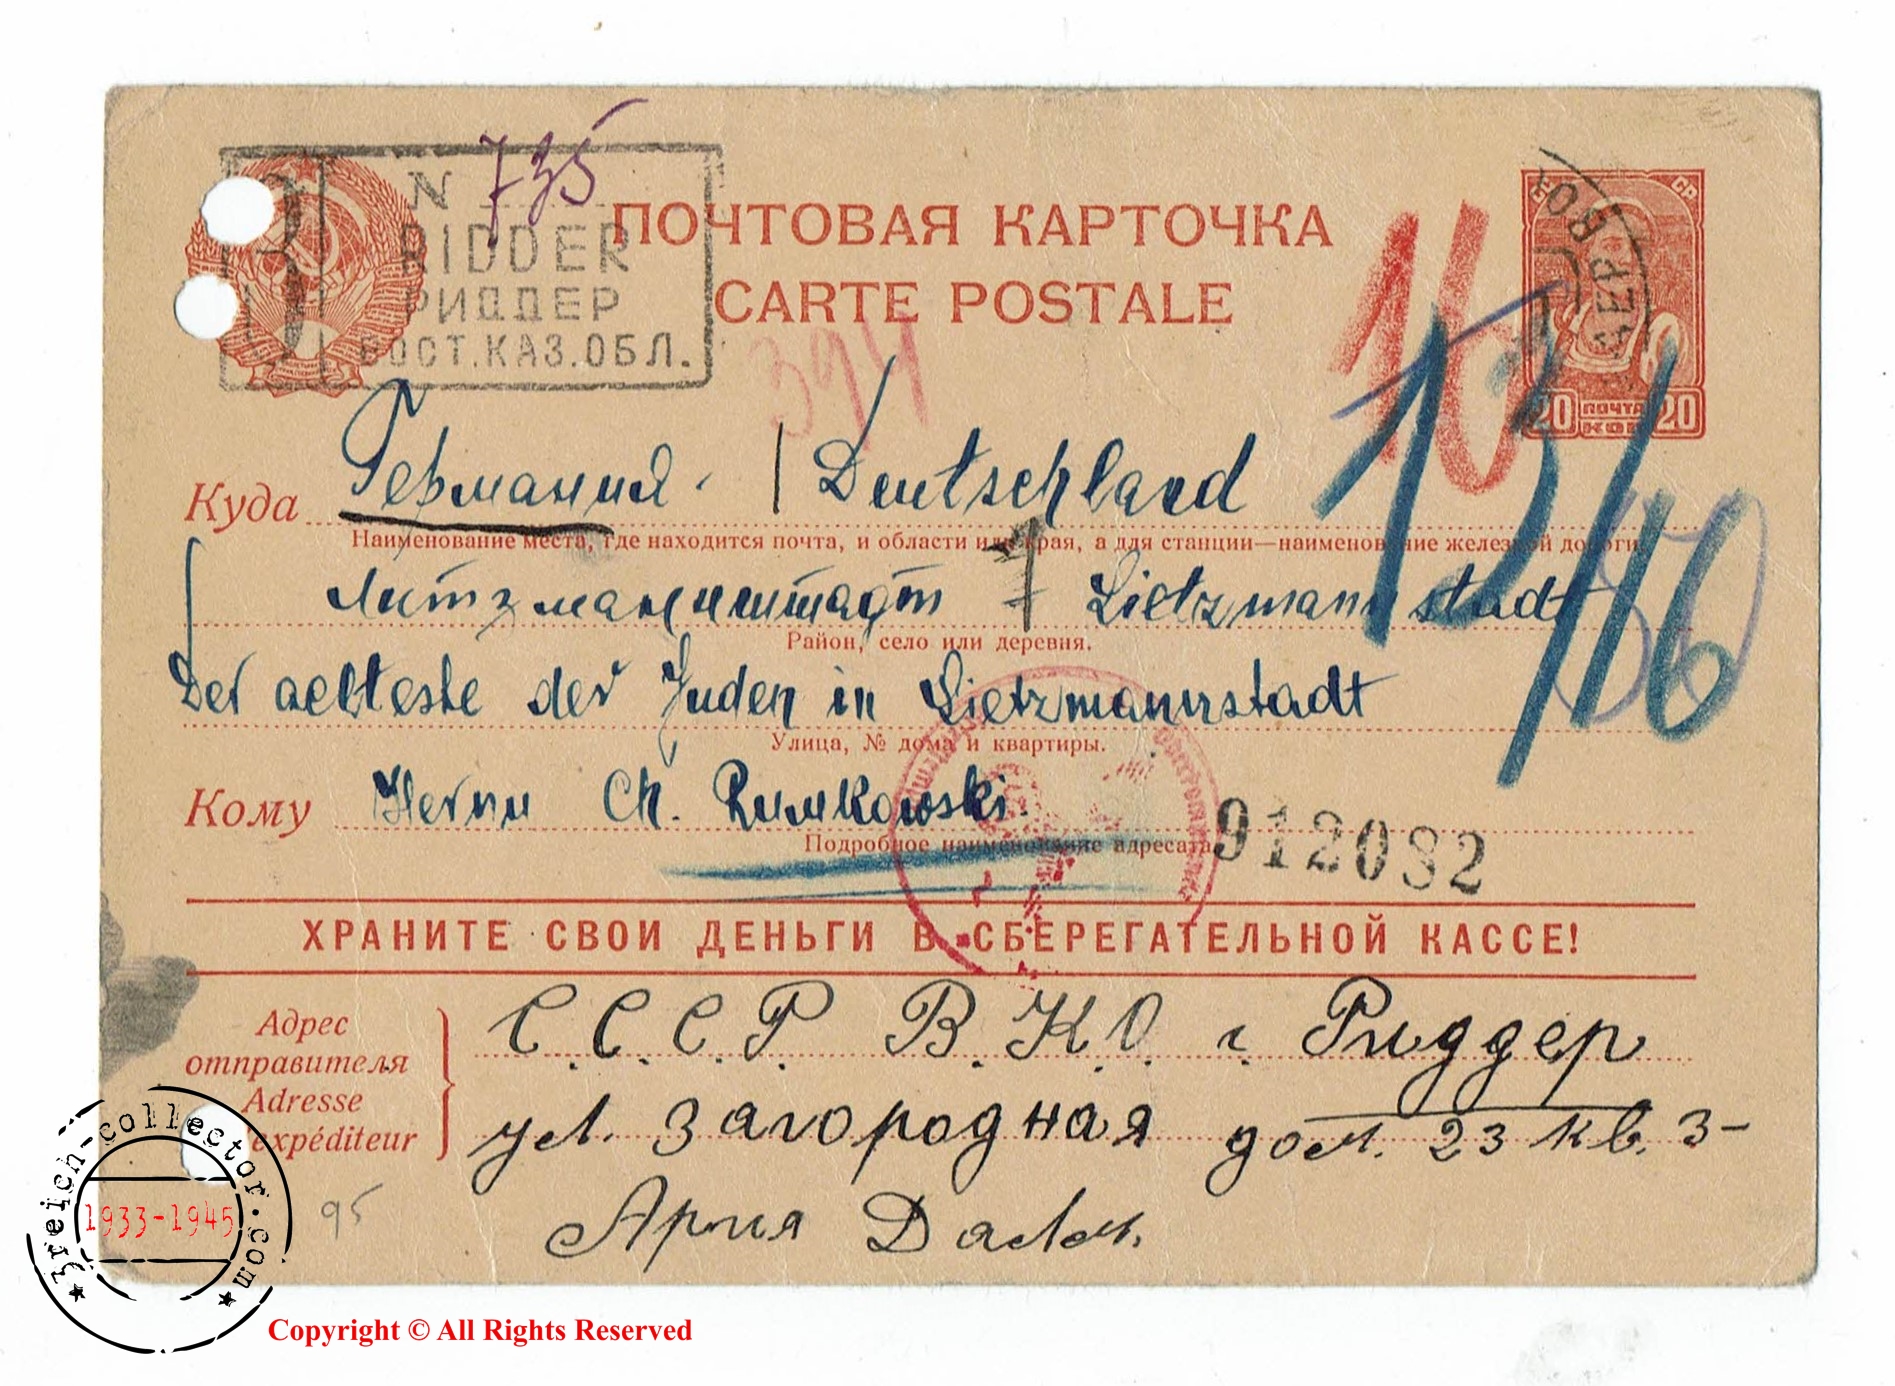 N 735
RIDDER
РИДДЕР
ВОСТ.КАЗ.ОБЛ.
ПОЧТОВАЯ КАРТОЧКА
CARTE POSTALE
394
16
13/16
20 ПОЧТА 20
КОП
Куда Германия. / Deutschland
Наименование места, где находится почта, и области или края, а для станции—наименование железной дороги
Литзманнштадт Lietzmannstadt
Район, село или деревня.
Der aelteste der Juden in Lietzmannstadt
Улица, № дома и квартиры.
Кому Herrn Ch. Rumkowski.
Подробное наименование адресата
912082
ХРАНИТЕ СВОИ ДЕНЬГИ В СБЕРЕГАТЕЛЬНОЙ КАССЕ!
Адрес
отправителя
Adresse
expéditeur
С.С.С.Р В.К.О. г. Риддер
ул. Загородная дом. 23 кв. 3-
Ария
95
3reich-collector.com
1933-1945
Copyright © All Rights Reserved